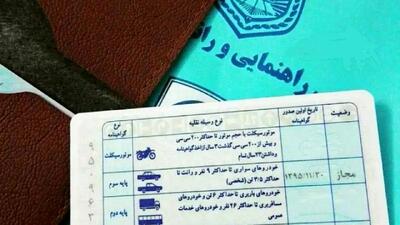 راهنمایی و را
وضعیت
تاریخ اولین صدور گواهینامه
نوع وسیله نقلیه
نوع گواهینامه
موتورسیکلت با حجم موتور تا حداکثر ۲۰۰ سی سی
و بیش از ۲۰۰ سی سی گذشت ۳ سال از اخذ گواهینامه
و داشتن ۲۳ سال تمام
موتورسیکلت
مجاز
۱۳۹۵/۱۱/۳۰
خودروهای سواری تا حداکثر ۹ نفر و وانت تا
حداکثر ۳/۵ تن (شخصی)
پایه سوم
خودروهای باربری تا حداکثر ۶ تن و خودروهای
مسافربری تا حداکثر ۲۶ نفر و خودروهای خدمات
عمومی
پایه دوم
۹
۵
۰
۹
۶
۳